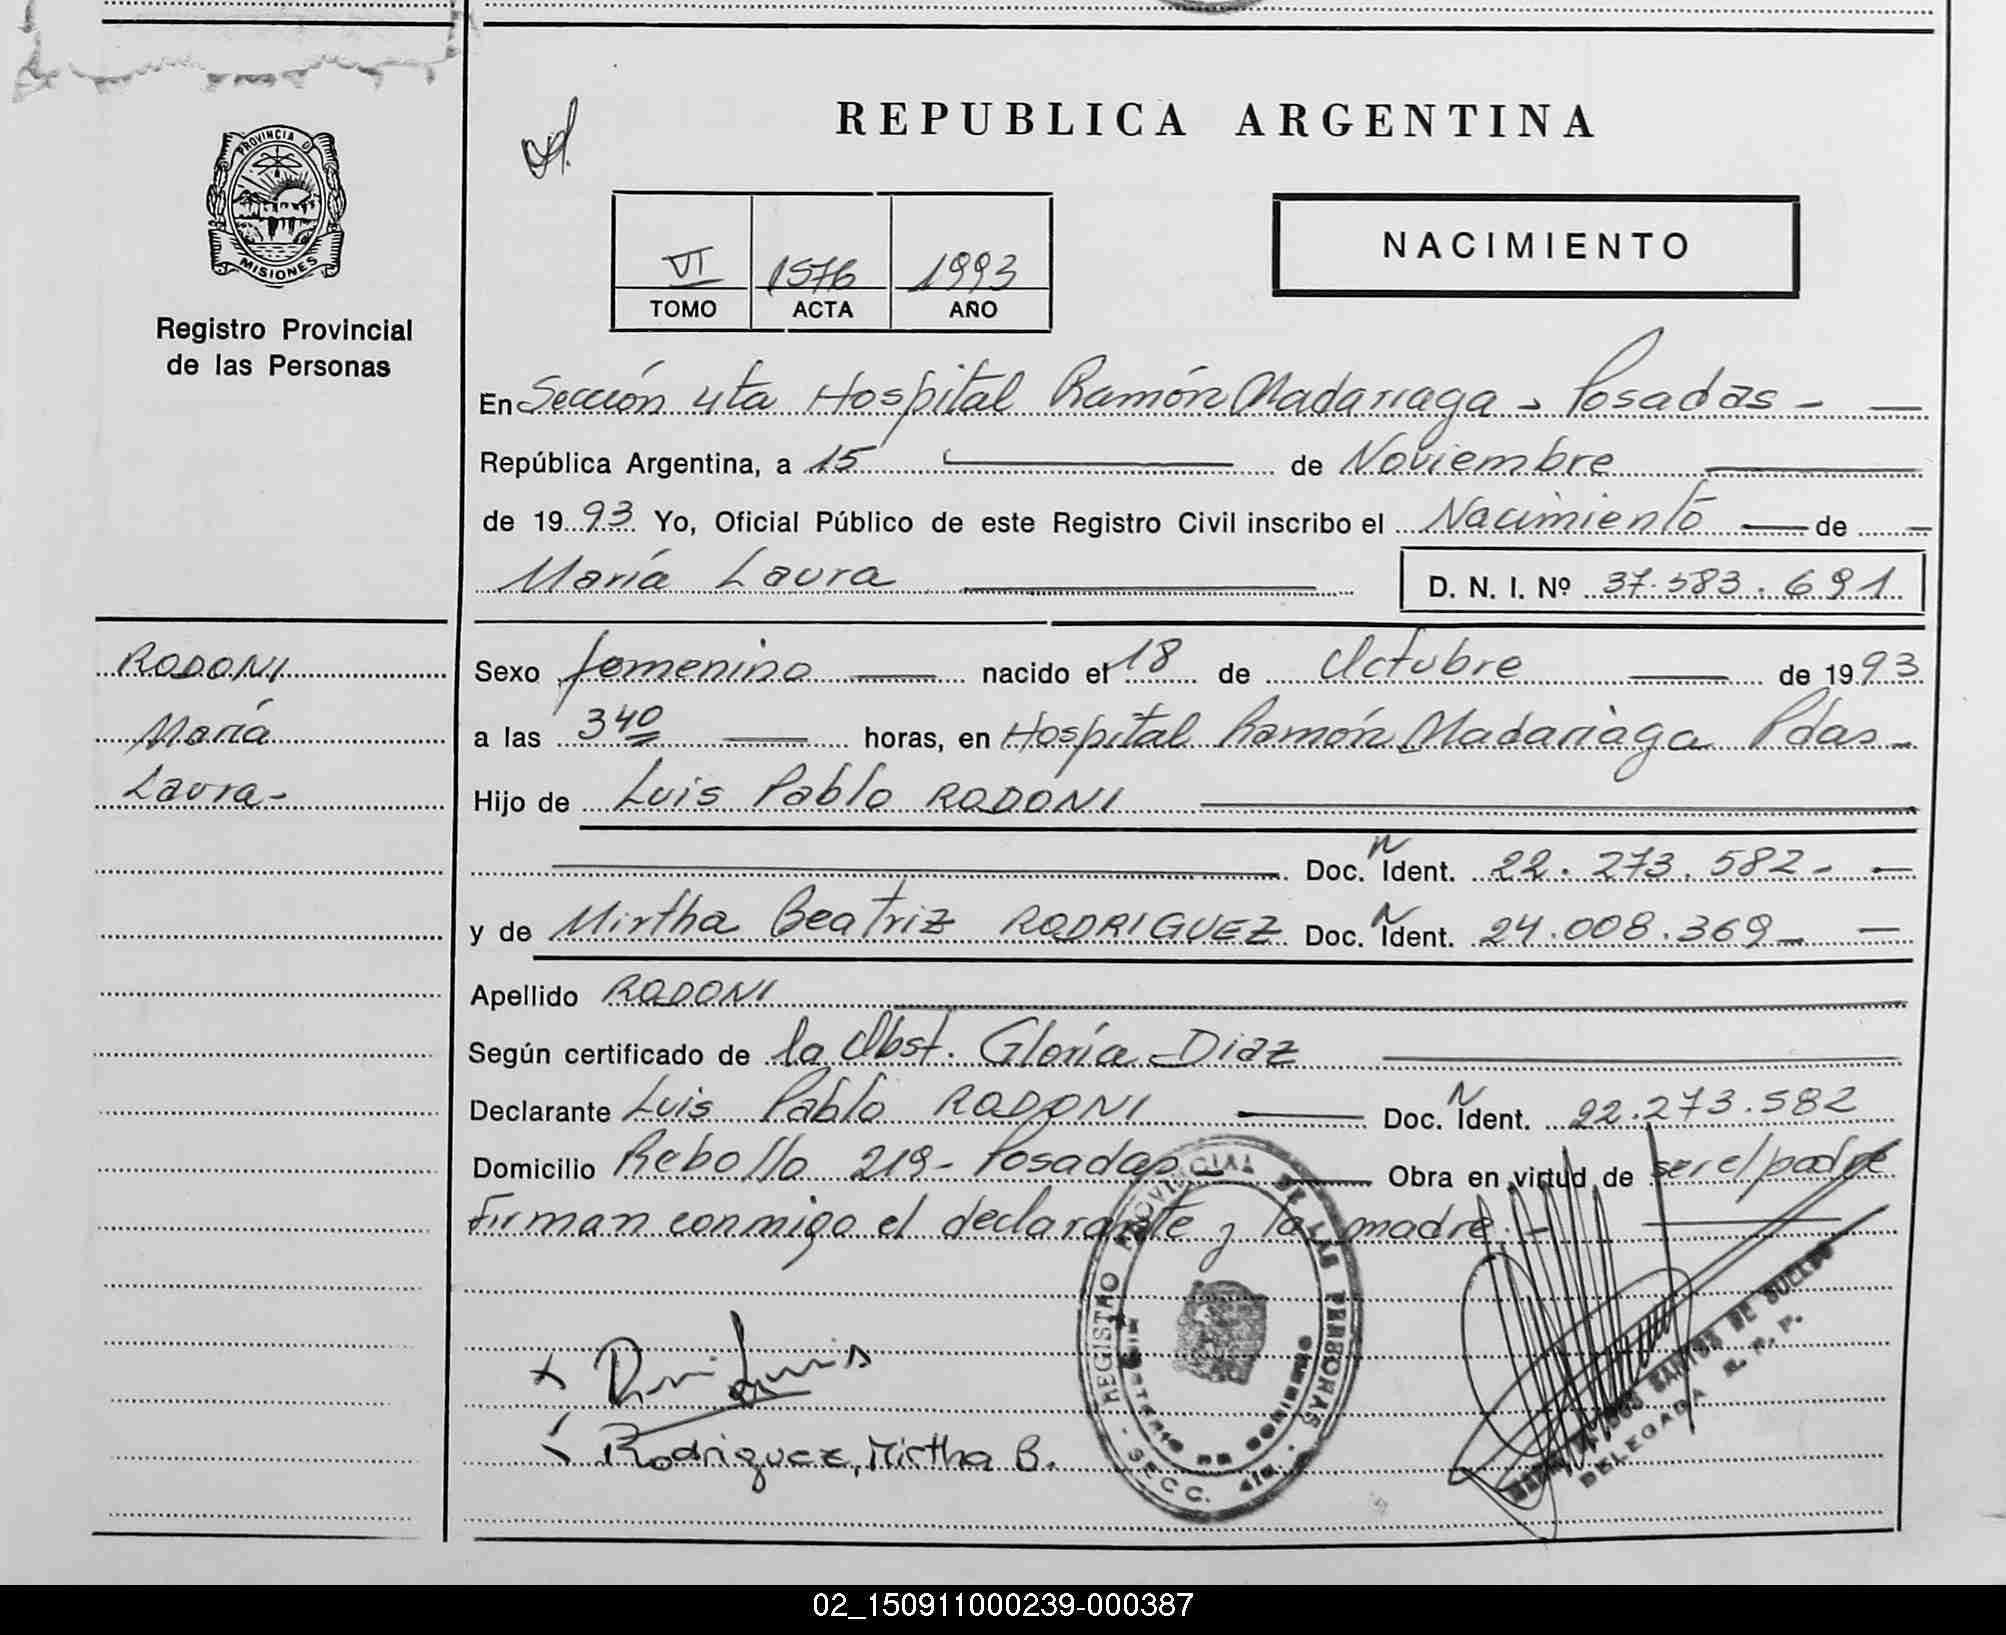 REPUBLICA ARGENTINA
PROVINCIA DE
MISIONES
Registro Provincial
de las Personas
VI 1576 1993
TOMO ACTA AÑO
NACIMIENTO
En Sección 4ta Hospital Ramón Madariaga - Posadas -
República Argentina, a 15 de Noviembre
de 1993 Yo, Oficial Público de este Registro Civil inscribo el Nacimiento de
María Laura D. N. I. Nº 37.583.691
RODONI
María
Laura-
Sexo femenino nacido el 18 de Octubre de 1993
a las 3 40 horas, en Hospital Ramón Madariaga Pdas -
Hijo de Luis Pablo RODONI
Doc. N Ident. 22.273.582-
y de Mirtha Beatriz RODRIGUEZ Doc. N Ident. 24.008.369-
Apellido RODONI
Según certificado de la Obst. Gloria Diaz
Declarante Luis Pablo RODONI Doc. N Ident. 22.273.582
Domicilio Rebollo 219- Posadas Obra en virtud de ser el padre
Firman conmigo el declarante y la madre.-
REGISTRO PROVINCIAL DE LAS PERSONAS
MINISTERIO DE GOBIERNO
SECC. 4ta.
SANTOS DE
DELEGADA R. P. P.
Rodriguez, Mirtha B.
02_150911000239-000387